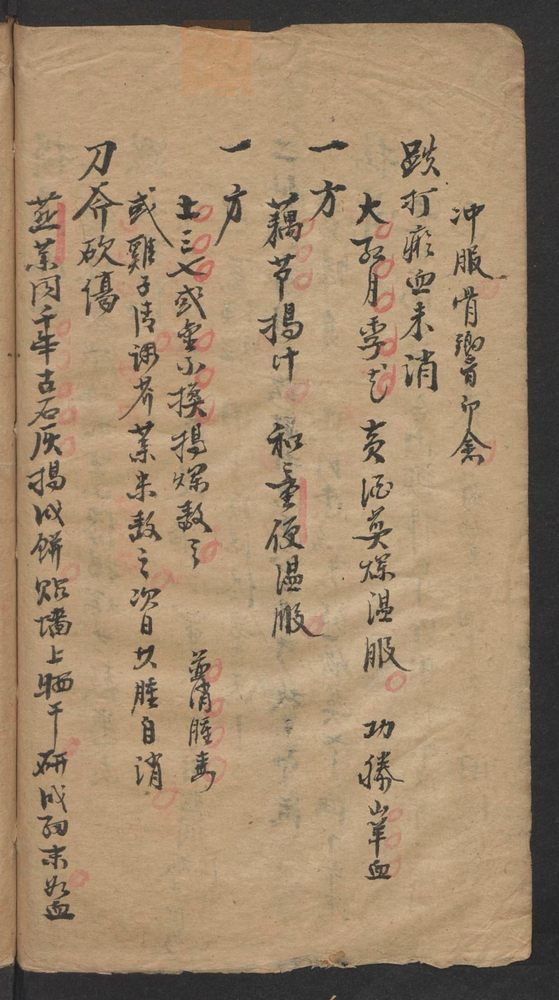 冲服骨響即愈
跌打瘀血未消
大紅月季花 煮酒 燉温服 功勝山羊血
一方
藕节搗汁 和童便温服
一方
土三七或 小 搗爛敷之 並消腫毒
或雞子清調芥菜末敷之次日其腫自消
刀斧砍傷
韭菜同千年古石灰搗成餅贴墙上晒干研成細末如血